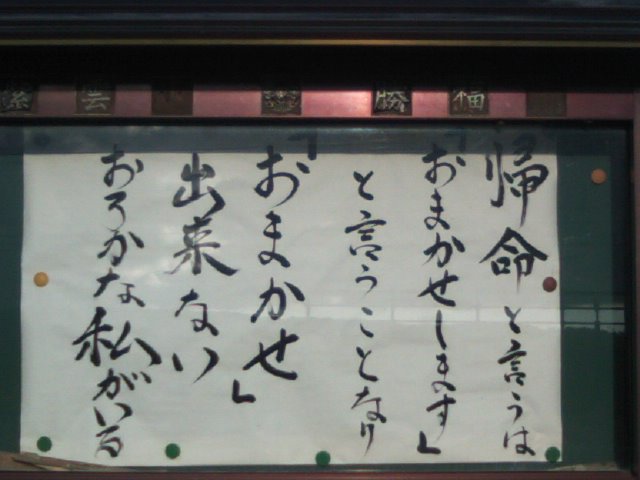 帰命と言うは
「おまかせします」
と言うことなり
「おまかせ」
出来ない
おろかな私がいる
福
勝
雲